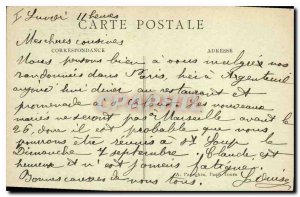 5 heures
CARTE POSTALE
Mes chères cousines
CORRESPONDANCE ADRESSE
Nous pensons bien à vous malgré nos
randonnées dans Paris, hier à Argenteuil
aujourd'hui diner au restaurant et
promenade à nouveaux
mariés ne seront pas à Marseille avant le
26, dont il est probable que nous
pourrons être réunis à St Loup le
Dimanche 7 septembre, Claude est
heureuse et n'est jamais fatiguée.
Bonnes caresses de nous tous. Louise